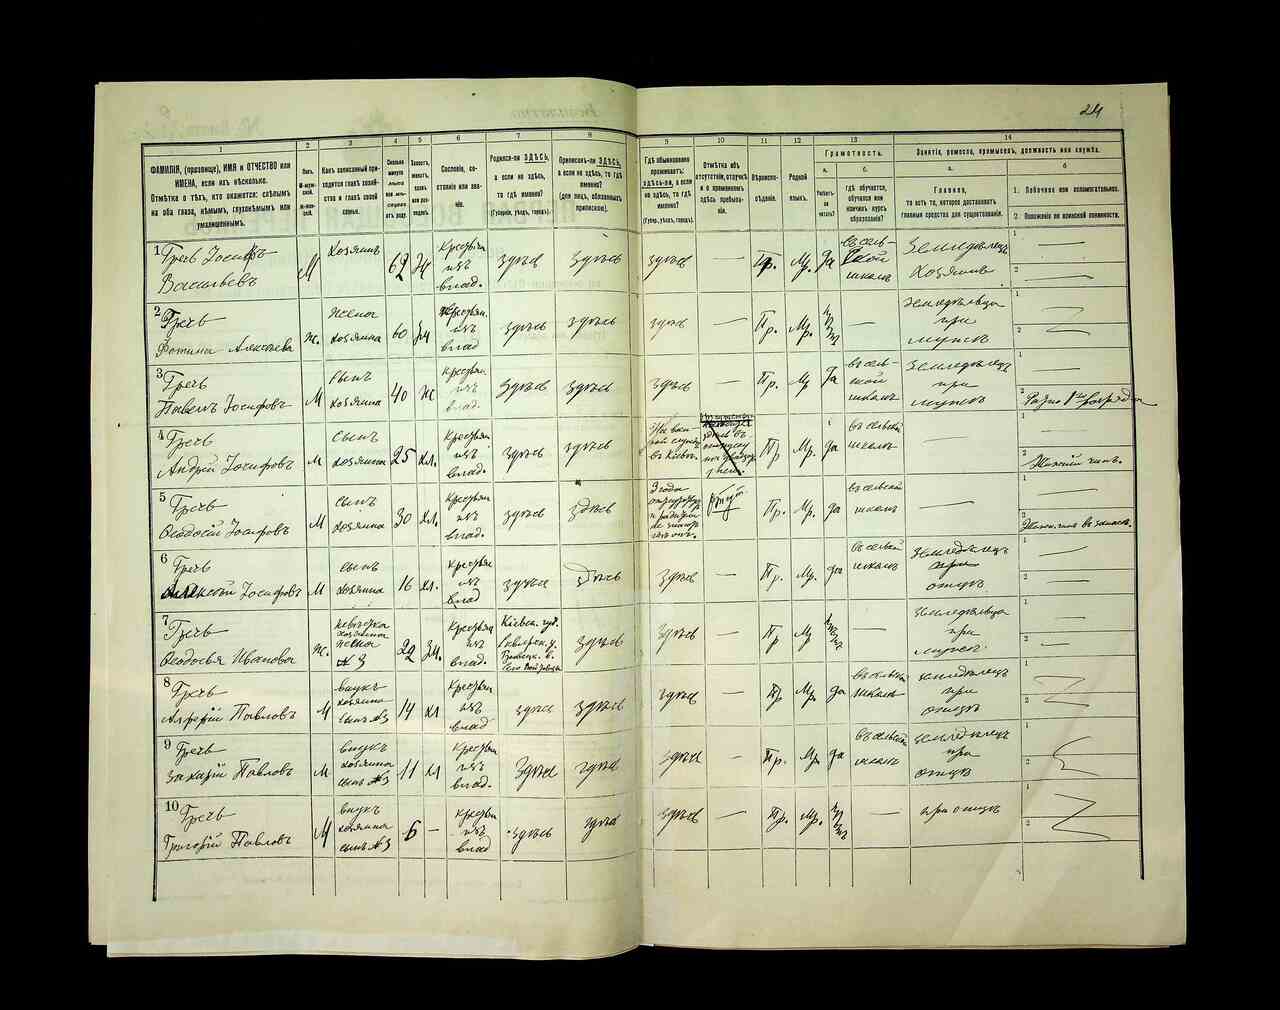 24
1 2 3 4 5 6 7 8 9 10 11 12 13 14
ФАМИЛІЯ, (прозвище), ИМЯ и ОТЧЕСТВО или
ИМЕНА, если ихъ нѣсколько.
Отмѣтка о тѣхъ, кто окажется: слѣпымъ
на оба глаза, нѣмымъ, глухонѣмымъ или
умалишеннымъ.
Полъ.
М-мужской.
Ж-женскій.
Какъ записанный при-
ходится главѣ хозяй-
ства и главѣ своей
семьи.
Сколько
минуло
лѣтъ
отъ роду.
Сословіе, со-
стояніе или зва-
ніе.
Родился-ли ЗДѢСЬ,
а если не здѣсь,
то гдѣ именно?
(Губернія, уѣздъ, городъ).
Приписанъ-ли ЗДѢСЬ,
а если не здѣсь, то гдѣ
именно?
(для лицъ, обязанныхъ
припискою).
Гдѣ обыкновенно
проживаетъ:
здѣсь-ли, а если
не здѣсь, то гдѣ
именно?
(Губер., уѣздъ, городъ).
Отмѣтка объ
отсутствіи, отлучкѣ
и о временномъ
здѣсь пребыва-
ніи.
Вѣроиспо-
вѣданіе.
Родной
языкъ.
Грамотность.
а. б.
Умѣетъ-
ли
читать?
Гдѣ обучается,
обучался или
кончилъ курсъ
образованія?
Занятіе, ремесло, промыселъ, должность или служба.
а. б
Главное,
то есть то, которое доставляетъ
главныя средства для существованія.
1. Побочное или вспомогательное.
2. Положеніе по воинской повинности.
1 Гречь Іосифъ
Васильевъ
М
хозяинъ
62
Крестьян
изъ
влад.
здѣсь
здѣсь
здѣсь
—
Пр.
Мр.
да
въ сель-
ской
школѣ
Земледѣлецъ
хозяинъ
1 —
2 —
2 Гречь
Фотина Алексѣева
Ж.
жена
хозяина
60
Крестьян
изъ
влад
здѣсь
здѣсь
здѣсь
—
Пр.
Мр.
—
земледѣлица
при
мужѣ
1
2
3 Гречь
Павелъ Іосифовъ
М
сынъ
хозяина
40
Крестьян
изъ
влад.
здѣсь
здѣсь
здѣсь
—
Пр.
Мр
да
въ сель-
ской
школѣ
Земледѣлецъ
при
мужѣ
1 —
2
4 Гречь
Андрей Іосифовъ
М
сынъ
хозяина
25
хл.
Крестьян
изъ
влад.
здѣсь
здѣсь
въ Кіевѣ.
Пр
Мр.
да
въ сельской
школѣ
—
1 —
2 Нижній чинъ.
5 Гречь
Ѳеодосій Іосифовъ
М
сынъ
хозяина
30
хл.
Крестьян
изъ
влад.
здѣсь
здѣсь
3 года
Пр.
Мр.
да
въ сельской
школѣ
—
1 —
2 Нижн. чин. въ запасѣ.
6 Гречь
Алексѣй Іосифовъ
М
сынъ
хозяина
16
хл.
Крестьян
изъ
влад
здѣсь
здѣсь
здѣсь
—
Пр.
Мр.
да
въ сельской
школѣ
Земледѣлецъ
при
отцѣ
1 —
2 —
7 Гречь
Ѳеодосья Иванова
Ж.
невѣстка
хозяина
жена
№ 3
Крестьян
изъ
влад.
Кіевск. губ.
здѣсь
здѣсь
—
Пр
Мр
—
Земледѣлица
при
мужѣ
1 —
2 —
8 Гречь
Алферій Павловъ
М
внукъ
хозяина
сынъ №3
14
хл
Крестьян
изъ
влад
здѣсь
здѣсь
здѣсь
—
Пр
Мр.
да
въ сельск
школѣ
земледѣлецъ
при
отцѣ
1
2
9 Гречь
Захарій Павловъ
М
внукъ
хозяина
сынъ №3
11
хл
Крестьян
изъ
влад.
здѣсь
здѣсь
здѣсь
—
Пр.
Мр.
да
въ сельской
школѣ
земледѣлецъ
при
отцѣ
1
2
10 Гречь
Григорій Павловъ
М
внукъ
хозяина
сынъ №3
6
—
Крестьян
изъ
влад
здѣсь
здѣсь
здѣсь
—
Пр.
Мр.
—
при отцѣ
1
2